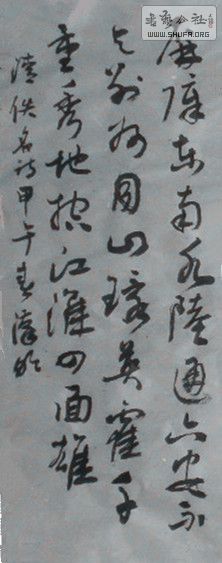 公社
WWW.SHUFA.ORG
屏障东南水陆通六安不
与别州同山环英霍千
重秀地控江淮四面雄
清佚名诗甲午春